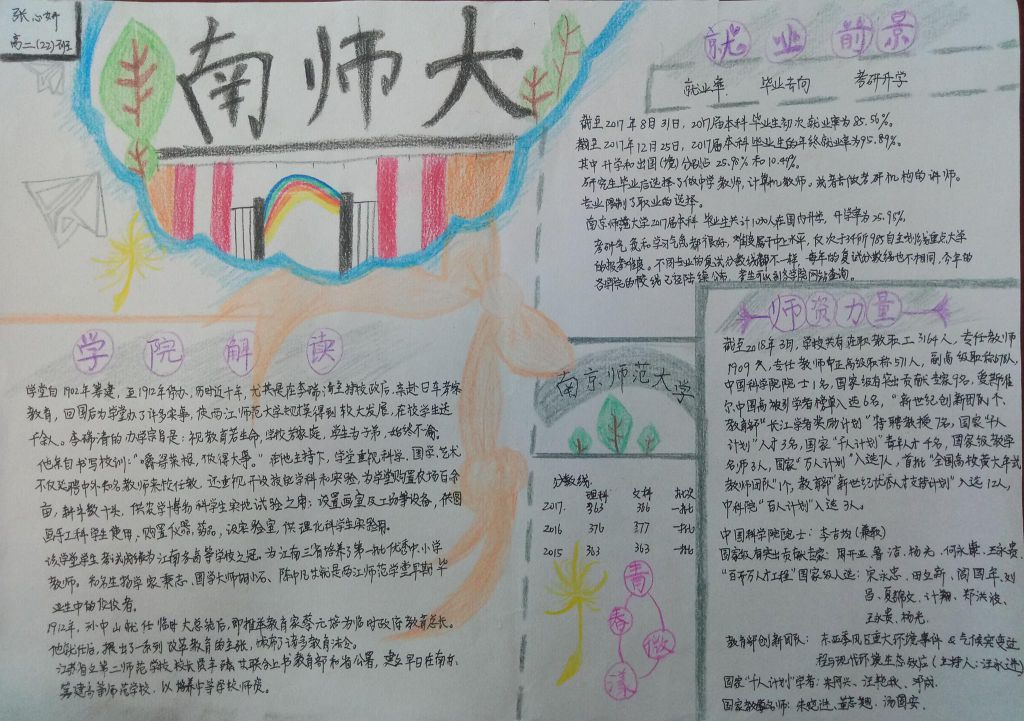 张心妍
高二(22)班
南师大
就业前景
就业率 毕业去向 考研升学
截至2017年8月31日，2017届本科毕业生初次就业率为85.56%。
截至2017年12月25日，2017届本科毕业生的年终就业率为95.89%。
其中升学和出国(境)分别占25.90%和10.49%。
研究生毕业后选择了做中学教师，计算机教师，或者去做考研机构的讲师。
专业限制了职业的选择。
南京师范大学2017届本科毕业生共计1090人在国内升学，升学率为25.95%。
考研气氛和学习气氛都很好，难度属于中上水平，仅次于环所985自主划线重点大学
的报考难度。不同专业的复试分数线都不一样，每年的复试分数线也不相同，今年的
各学院的校线已经陆续公布，考生可以到各学院网站查询。
学院解读
学堂自1902年筹建，至1912年停办，历时近十年，尤其是在李瑞清主持校政后，亲赴日本考察
教育，回国后为学堂办了许多实事，使两江师范大学规模得到较大发展，在校学生达
千余人。李瑞清的办学宗旨是：视教育若生命，学校若家庭，学生若子弟，始终不渝。
他亲自书写校训："嚼得菜根，做得大事。"在他主持下，学堂重视科学、国学、艺术
不仅延聘中外知名教师来校任教，还重视开设教学科和实验，为学堂购置农场百余
亩，耕牛数十头，供农学博物科学生实地试验之用；设置画室及工场等设备，供图
画手工科学生使用，购置仪器、药品，设实验室，供理化科学生实验用。
该学堂学生考试成绩为江南各高等学校之冠。为江南三省培养了第一批优秀中小学
教师。知名生物学家秉志、国学大师胡小石、陈中凡先生都是两江师范学堂早期毕
业生中的佼佼者。
1912年，孙中山就任临时大总统后，即推举教育家蔡元培为临时政府教育总长。
他就任后，提出了一系列改革教育的主张，颁布了诸多教育法令。
江苏省立第二师范学校校长贾丰臻等联名上书教育部和省公署，建立早日在南京
筹建高等师范学校，以培养中等学校师资。
南京师范大学
分数线
理科 文科 批次
2017 363 356 一批
2016 376 377 一批
2015 363 363 一批
青
春
微
漾
师资力量
截至2018年3月，学校共有在职教职工3164人，专任教师
1909人，专任教师有正高级职称571人，副高级职称678人，
中国科学院院士1名，国家级有突出贡献专家9名，爱斯维
尔中国高被引学者榜单入选6名，"新世纪创新团队"个，
教育部"长江学者奖励计划"特聘教授7名，国家"千人
计划"人才3名，国家"千人计划"青年人才4名，国家级教学
名师3人，国家"万人计划"入选7人，首批"全国高校黄大年式
教师团队"1个，教育部"新世纪优秀人才支持计划"入选12人，
中科院"百人计划"入选3人。
中国科学院院士：李吉均(兼职)
国家级有突出贡献专家：周开亚、鲁洁、杨光、何永康、王永贵
"百千万人才工程"国家级人选：宋永忠、田立新、闾国年、刘
昌、夏锦文、计翔、郑洪波、
王永贵、杨光。
教育部创新团队：东亚季风区重大环境事件&气候突变过
程与现代环境生态效应(主持人：汪永进)
国家"千人计划"学者：朱阿兴、汪艳秋、邓成。
国家教学名师：朱晓进、董志翘、汤国安。